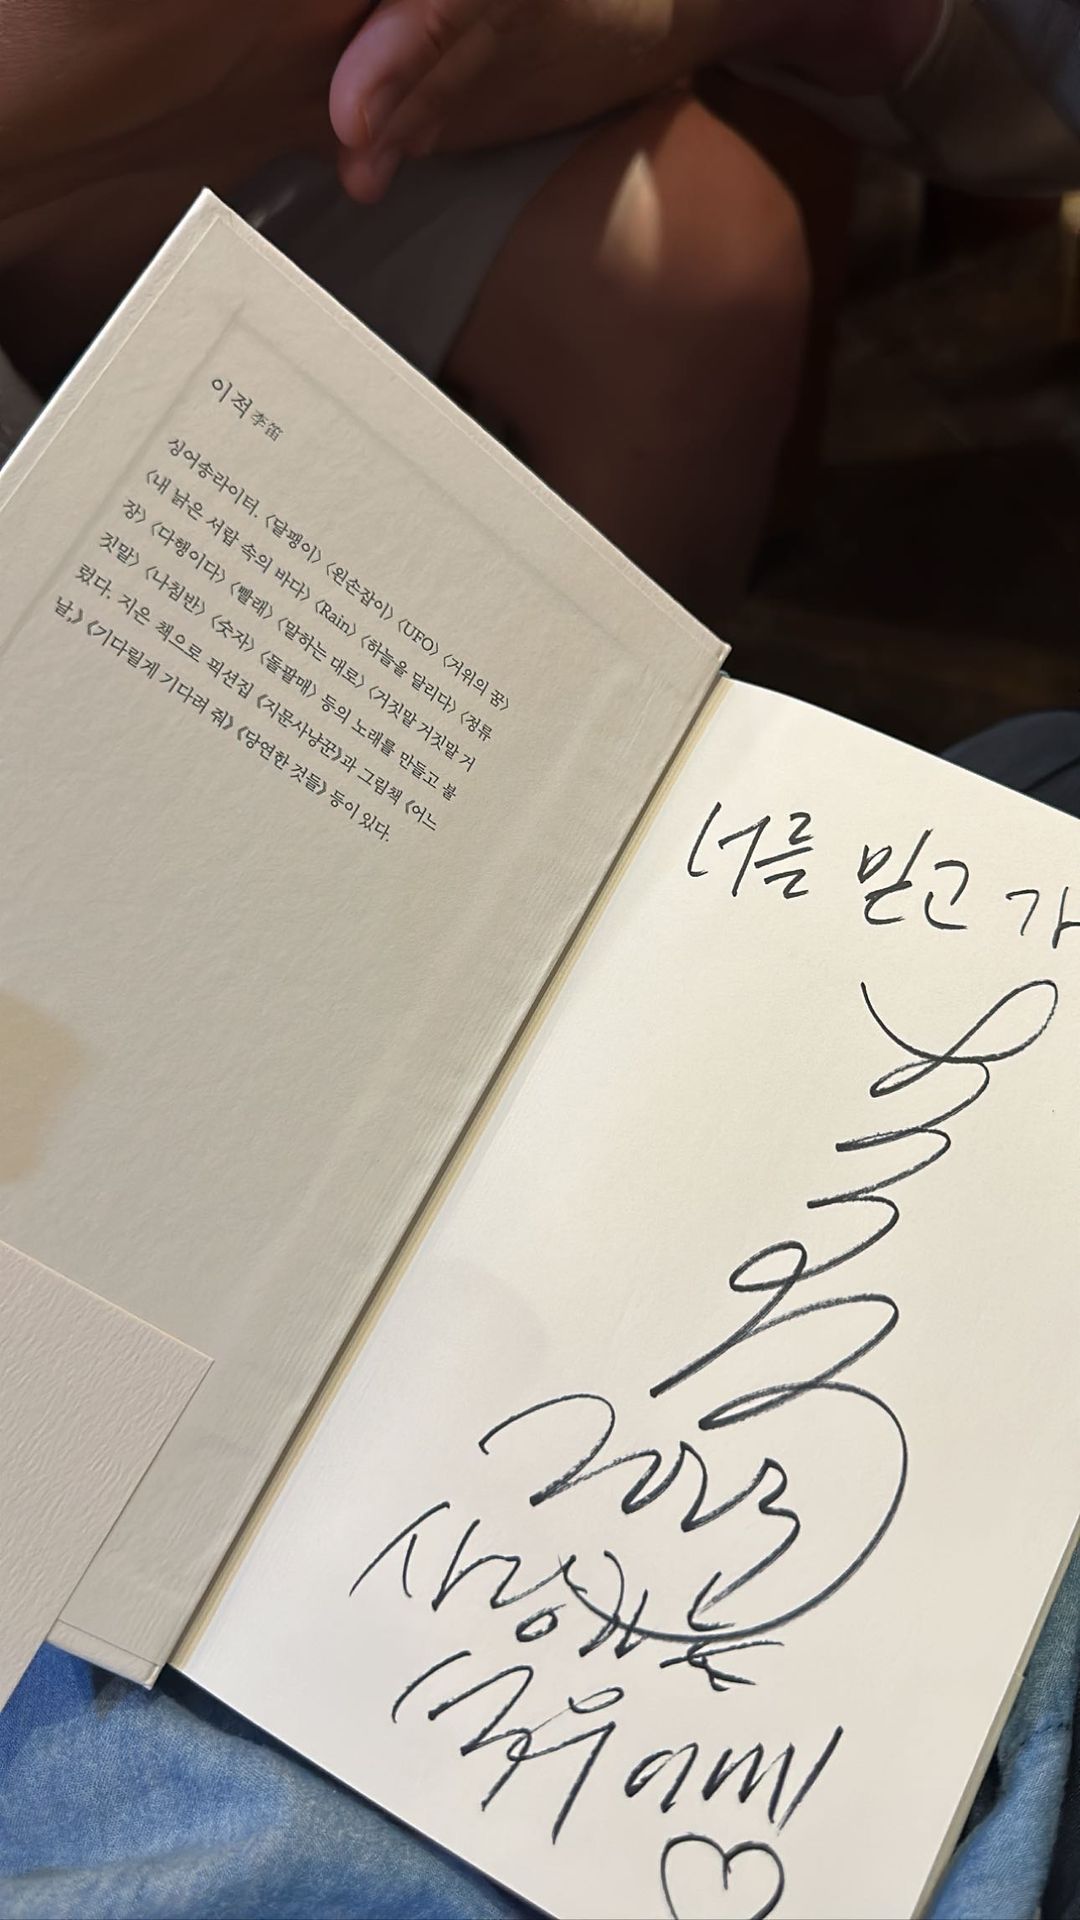 이적 李笛
싱어송라이터. 〈달팽이〉 〈왼손잡이〉 〈UFO〉 〈거위의 꿈〉
〈내 낡은 서랍 속의 바다〉 〈Rain〉 〈하늘을 달리다〉 〈정류
장〉 〈다행이다〉 〈빨래〉 〈말하는 대로〉 〈거짓말 거짓말 거
짓말〉 〈나침반〉 〈숫자〉 〈돌팔매〉 등의 노래를 만들고 불
렀다. 지은 책으로 픽션집 《지문사냥꾼》과 그림책 《어느
날,》 《기다릴게 기다려 줘》 《당연한 것들》 등이 있다.
너를 믿고 가
2023
사랑하는